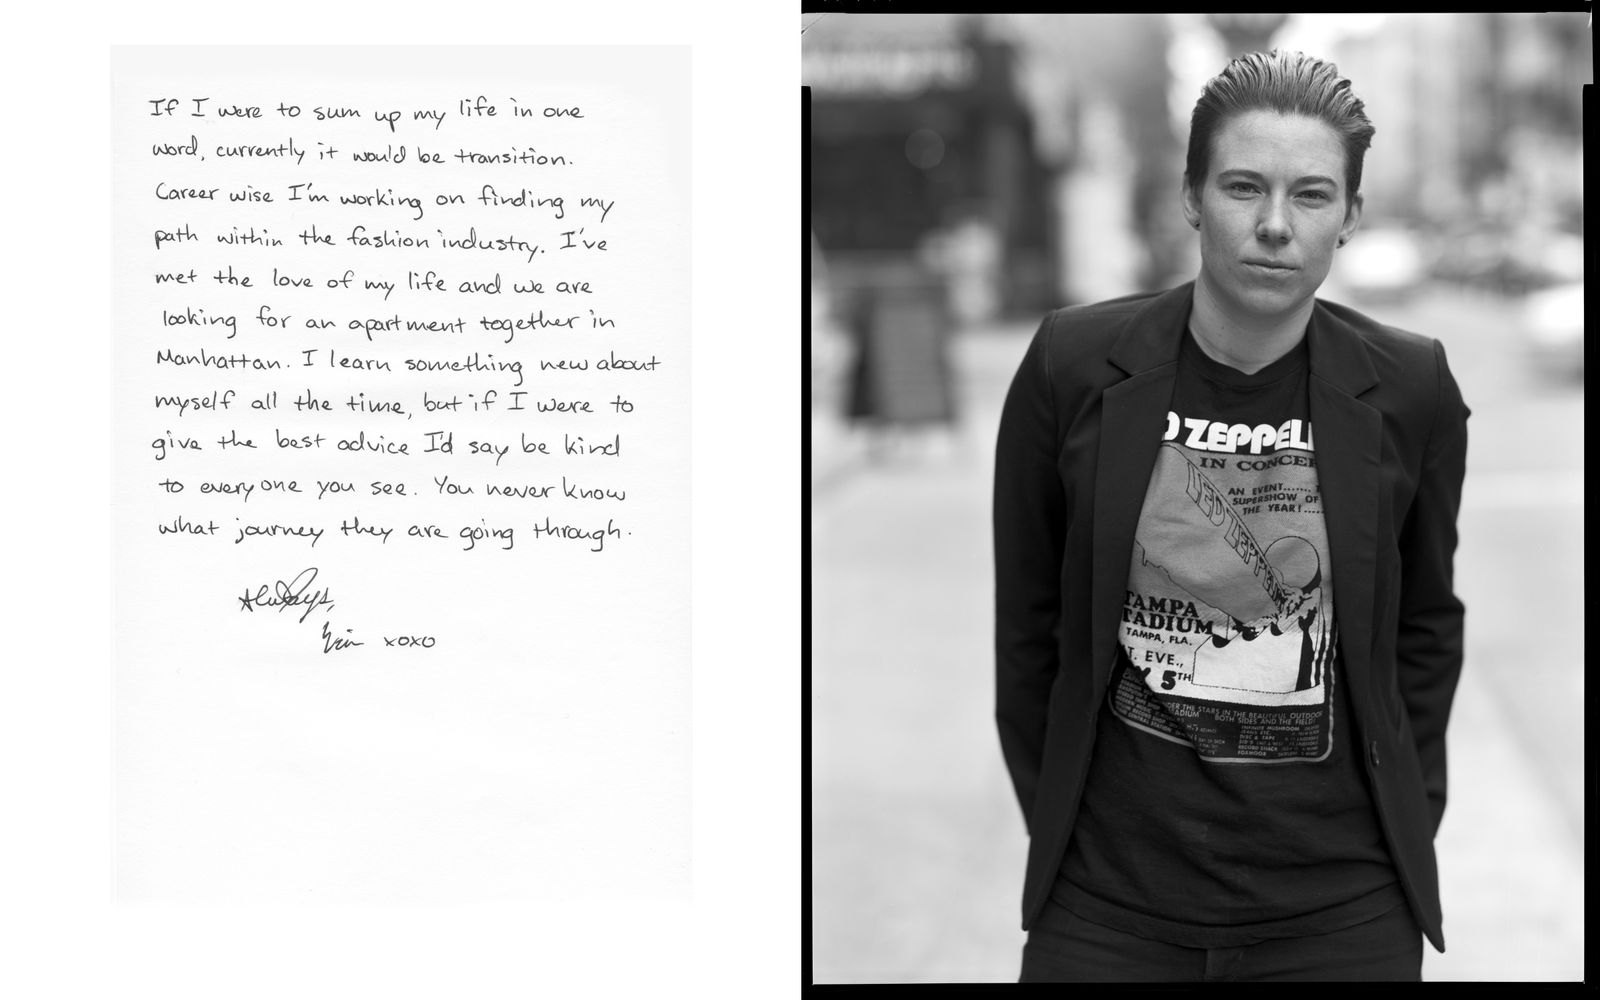 If I were to sum up my life in one
word, currently it would be transition.
Career wise I'm working on finding my
path within the fashion industry. I've
met the love of my life and we are
looking for an apartment together in
Manhattan. I learn something new about
myself all the time, but if I were to
give the best advice I'd say be kind
to everyone you see. You never know
what journey they are going through.
Always,
Erin xoxo
D ZEPPELI
IN CONCER
AN EVENT.......
SUPERSHOW OF
THE YEAR!.....
LED ZEPPELIN
TAMPA
TADIUM
TAMPA, FLA.
T. EVE.,
Y 5TH
DER THE STARS IN THE BEAUTIFUL OUTDOO
TADIUM BOTH SIDES AND THE FIELD